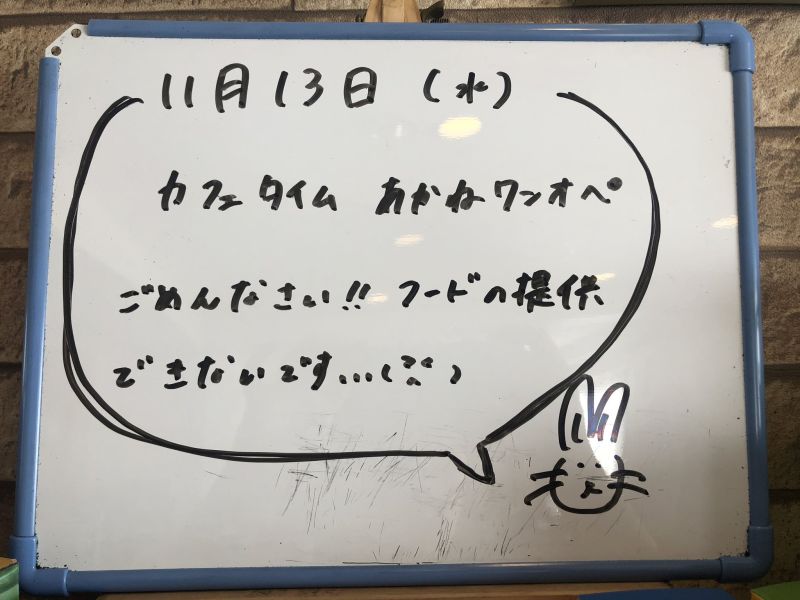 11月13日(水)
カフェタイム あかねワンオペ
ごめんなさい!! フードの提供
できないです...(>.<)